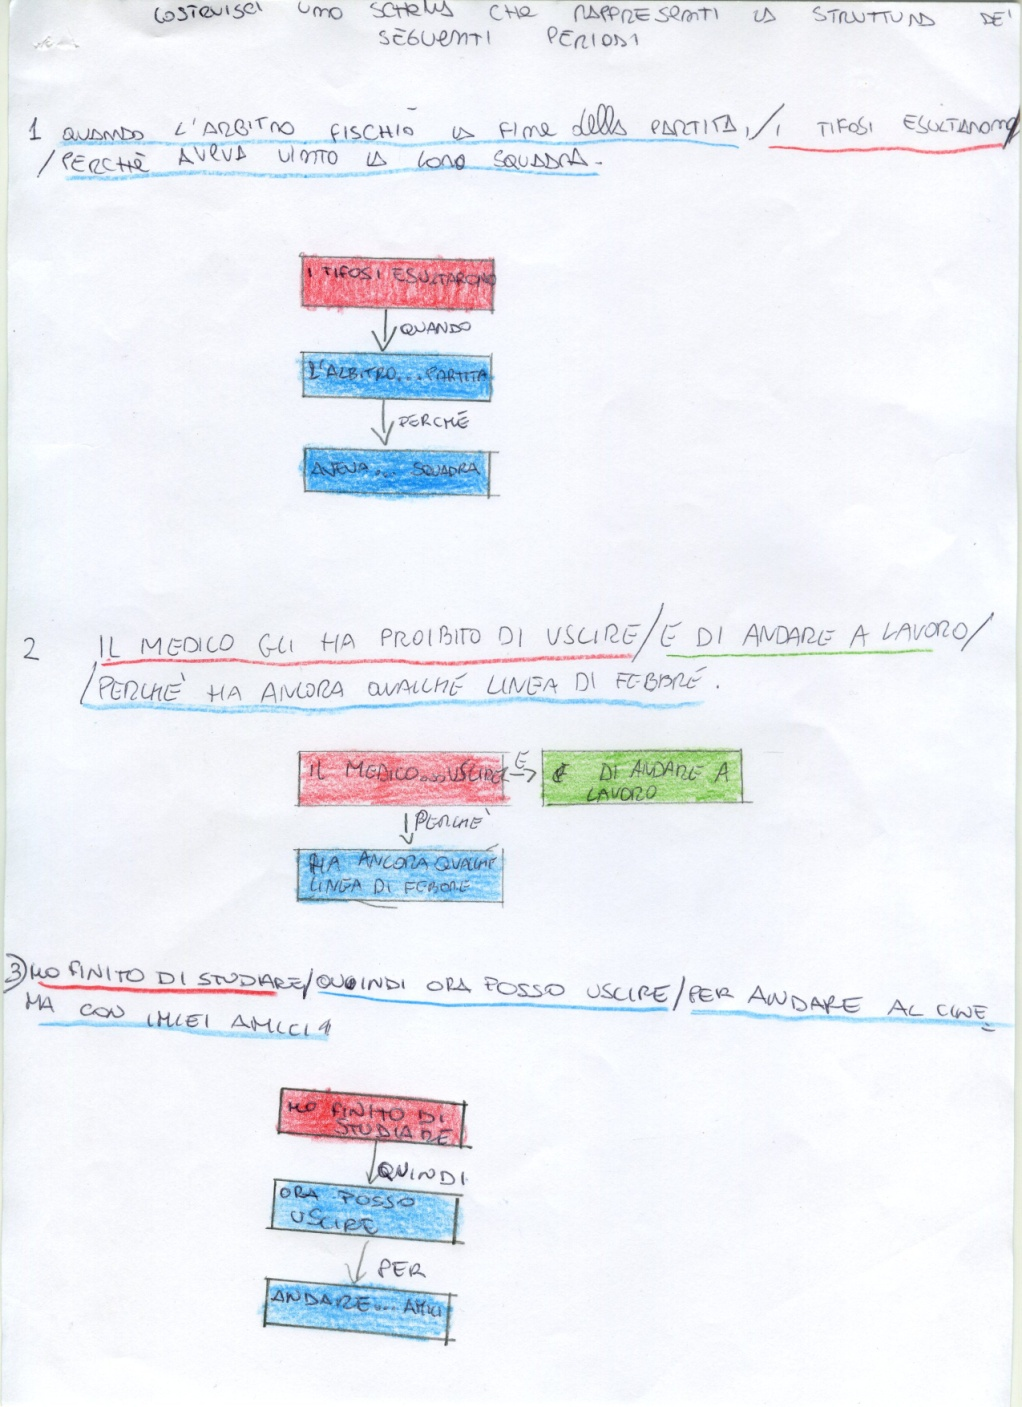 COSTRUISCI UNO SCHEMA CHE RAPPRESENTI LA STRUTTURA DEI
SEGUENTI PERIODI
1 QUANDO L'ARBITRO FISCHIÒ LA FINE della PARTITA, / I TIFOSI ESULTARONO
/ PERCHÈ AVEVA VINTO LA LORO SQUADRA.
I TIFOSI ESULTARONO
QUANDO
L'ALBITRO... PARTITA
PERCHÈ
AVEVA... SQUADRA
2 IL MEDICO GLI HA PROIBITO DI USCIRE / E DI ANDARE A LAVORO /
/ PERCHE' HA ANCORA QUALCHE LINEA DI FEBBRE.
IL MEDICO....USCIRE E E DI ANDARE A
LAVORO
PERCHE'
HA ANCORA QUALCHE
LINEA DI FEBBRE
3) HO FINITO DI STUDIARE / QUINDI ORA POSSO USCIRE / PER ANDARE AL CINE
MA CON I MIEI AMICI
HO FINITO DI
STUDIARE
QUINDI
ORA POSSO
USCIRE
PER
ANDARE... AMICI